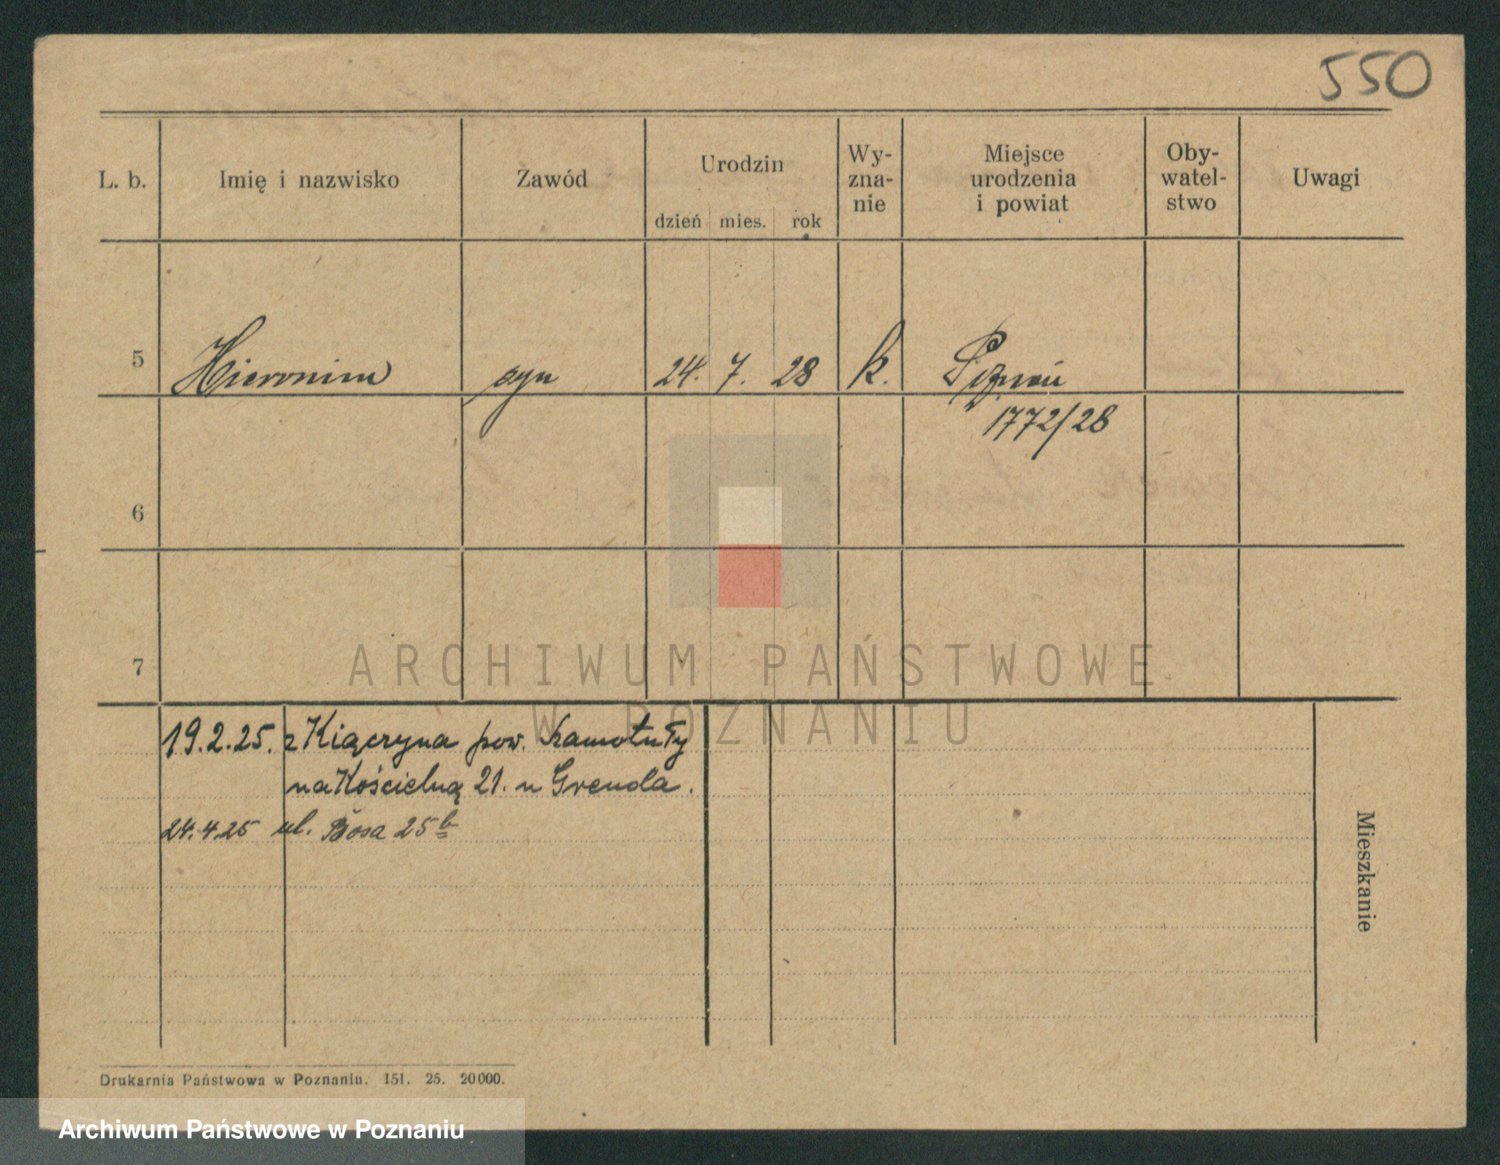 550
L. b. Imię i nazwisko Zawód Urodzin dzień mies. rok Wy-zna-nie Miejsce urodzenia i powiat Oby-watel-stwo Uwagi
5 Hieronim syn 24. 7. 28 k. Poznań
1772/28
6
7
ARCHIWUM PAŃSTWOWE
W POZNANIU
19.2.25. z Kiączyna pow. Szamotuły
na Kościelną 21. u Grenda.
24.4.25 ul. Bosa 25b
Mieszkanie
Drukarnia Państwowa w Poznaniu. 151. 25. 20000.
Archiwum Państwowe w Poznaniu